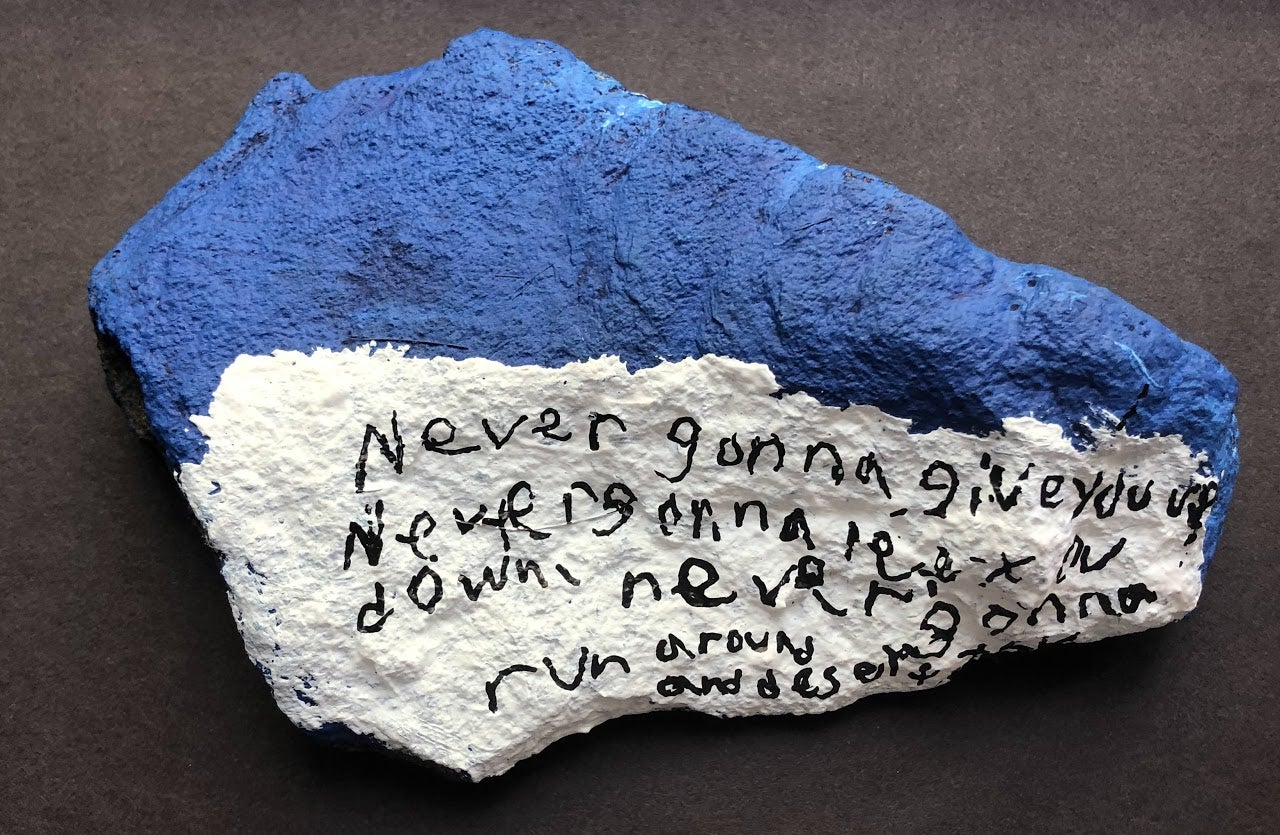 Never gonna give you up
Never gonna
down, never gonna
run around
and desert